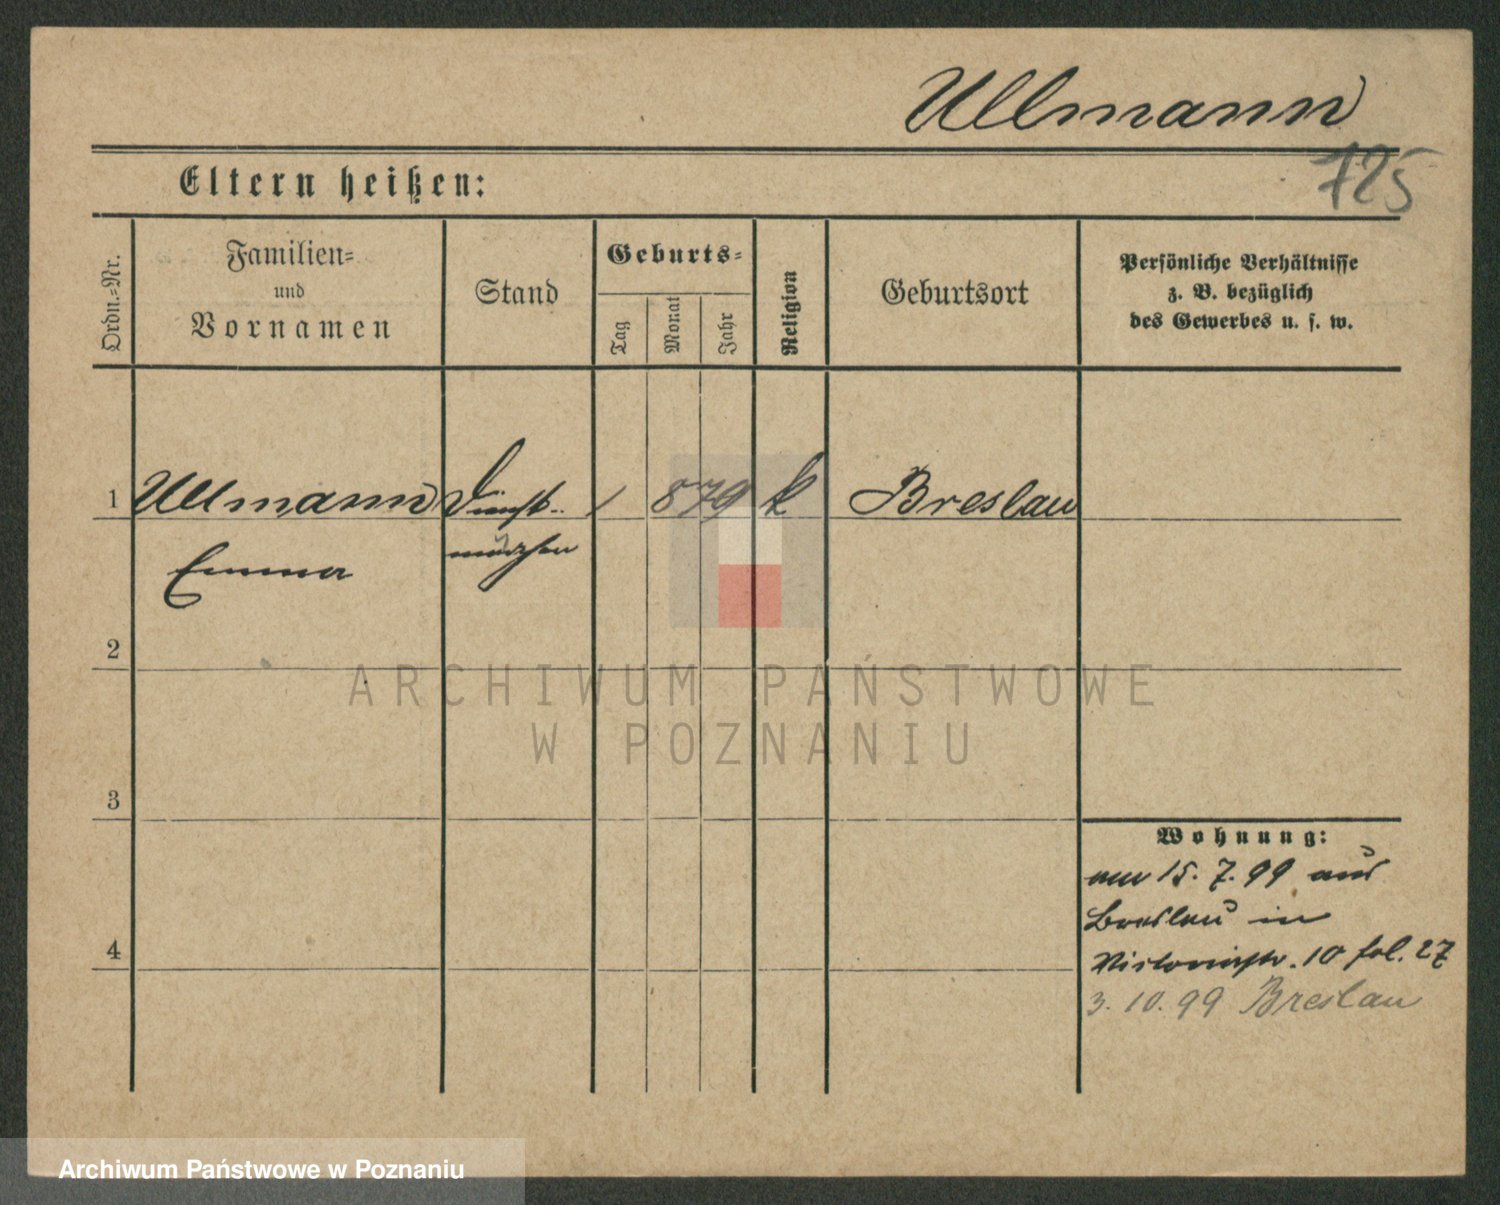 Ullmann
725
Eltern heißen:
Ordn.-Nr.
Familien-
und
Vornamen
Stand
Geburts-
Tag
Monat
Jahr
Religion
Geburtsort
Persönliche Verhältnisse
z. B. bezüglich
des Gewerbes u. s. w.
1 Ullmann Dienst- 1 8 79 k Breslau
Emma mädchen
2
ARCHIWUM PAŃSTWOWE
W POZNANIU
3
Wohnung:
am 15. 7. 99 aus
Breslau in
4
Victoriastr. 10 fol. 27
3. 10. 99 Breslau
Archiwum Państwowe w Poznaniu